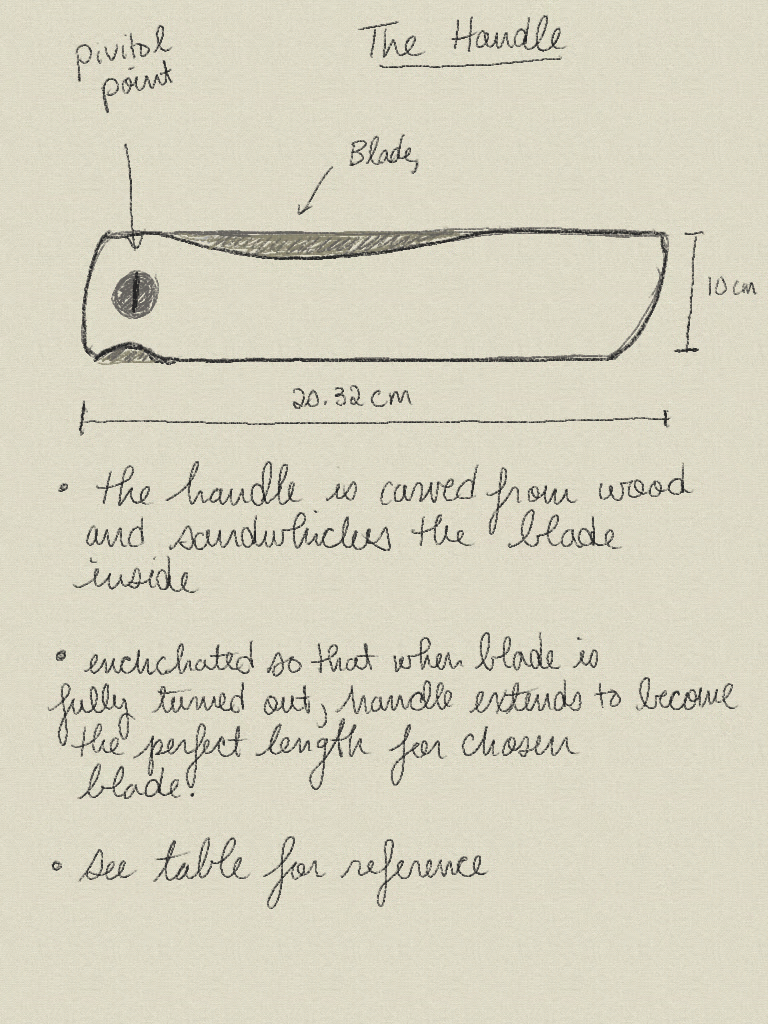 The Handle
pivitol
point
Blade,
10 cm
20.32 cm
• the handle is carved from wood
and sandwhiches the blade
inside
• enchchated so that when blade is
fully turned out, handle extends to become
the perfect length for chosen
blade.
• see table for reference